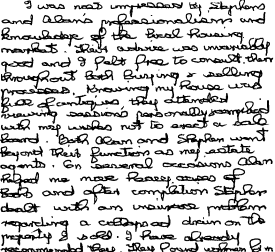 I was most impressed by Stephens
and Alan's professionalism and
knowledge of the local housing
market. Their advice was invariably
good and I felt free to consult them
throughout both buying & selling
processes. Knowing my house was
full of antiques, they attended
viewing sessions personally &
with my wishes not to erect a sale
board. Both Alan and Stephen went
beyond their functions as my estate
agents. On several occasions Alan
helped me move heavy
and after completion Stephen
dealt with an insurance problem
regarding a collapsed drain on the
property I sold. I have already
recommended them. They found